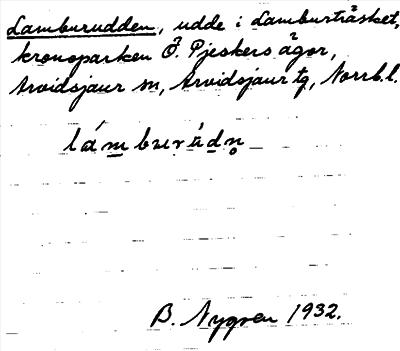 Lamburudden, udde i Lamburträsket,
kronoparken Ö. Pjeskers ägor,
Arvidsjaur sn, Arvidsjaur tg, Norrb. l.
B. Nygren 1932.